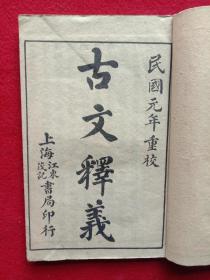 民國元年重校
古文釋義
上海江東茂記書局印行